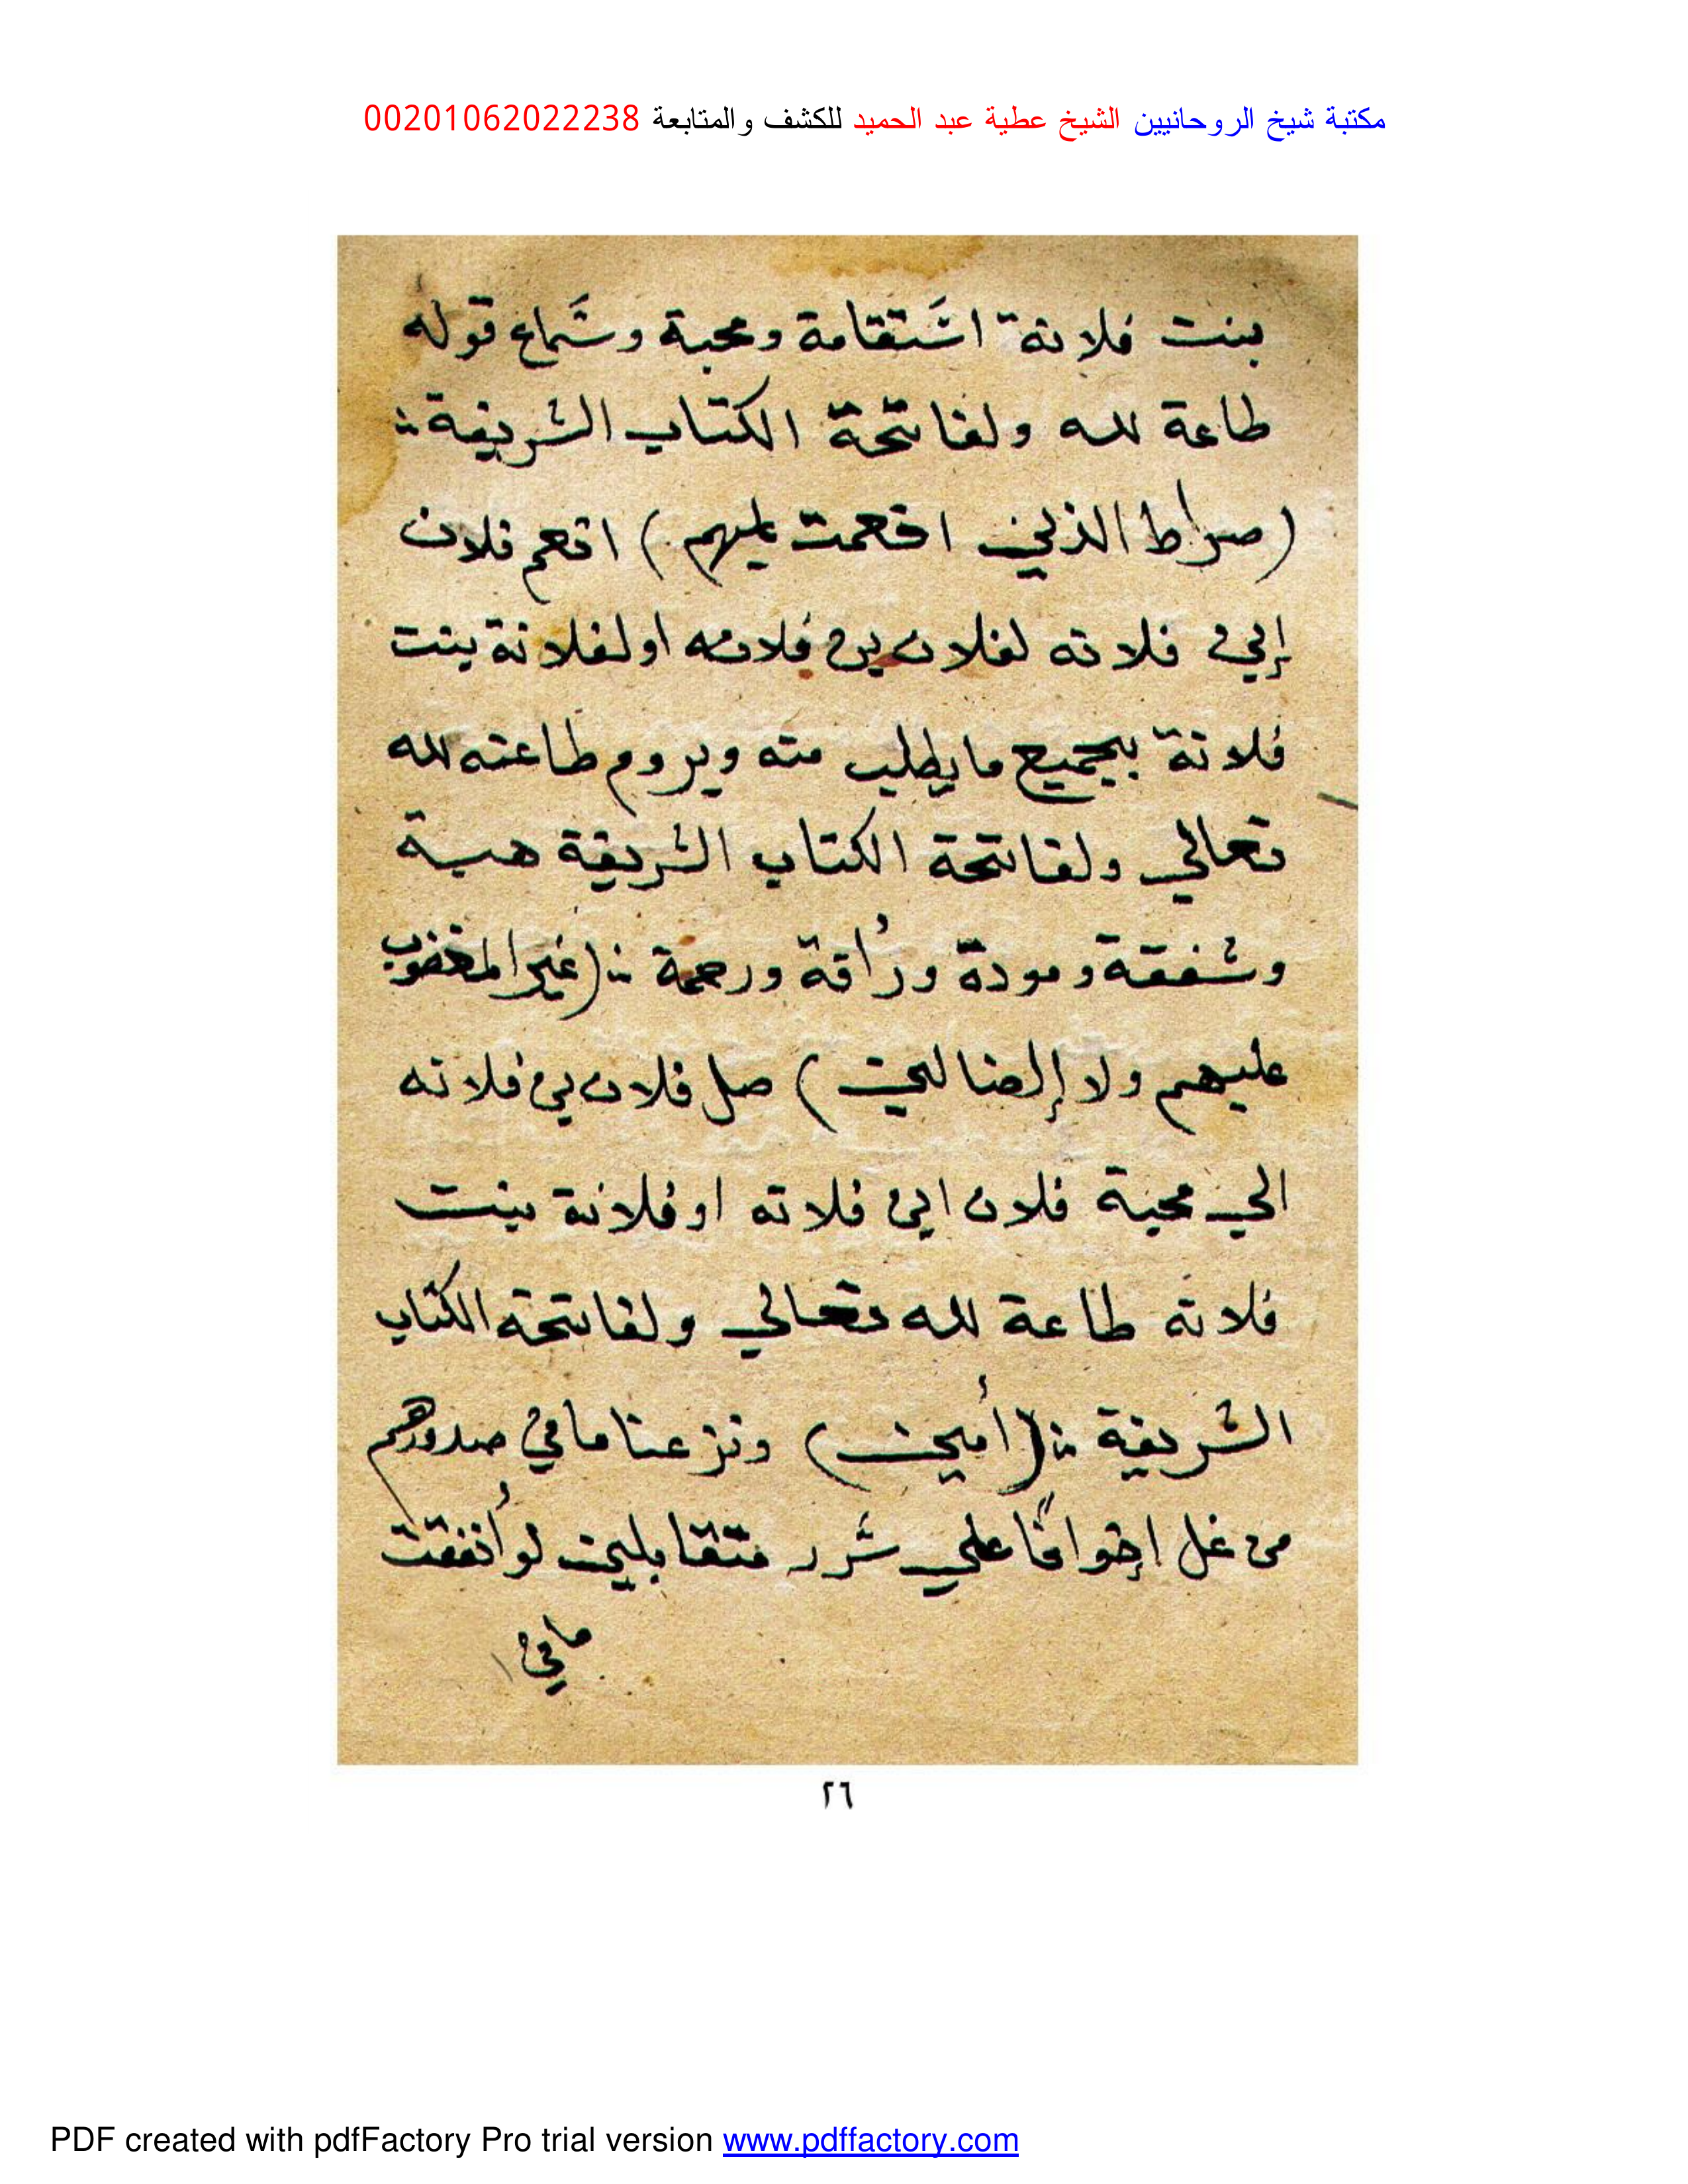 مكتبة شيخ الروحانيين الشيخ عطية عبد الحميد للكشف والمتابعة 00201062022238
بنت فلانة استقامة ومحبة وسماع قوله
طاعة لله ولفاتحة الكتاب الشريفة
(صراط الذين انعمت عليهم) انعم فلان
إبن فلانه لفلان بن فلانه او لفلانة بنت
فلانة بجميع ما يطلب منه ويروم طاعته لله
تعالي ولفاتحة الكتاب الشريفة هيبة
وشفقة ومودة ورأفة ورحمة (غير المغضوب
عليهم ولا إلضالين) صل فلان بن فلانه
الي محبة فلان ابن فلانه او فلانة بنت
فلانه طاعة لله تعالي ولفاتحة الكتاب
الشريفة (أمين) ونزعنا ما في صدورهم
من غل إخوانًا علي سرر متقابلين لو أنفقت
ما في
٢٦
PDF created with pdfFactory Pro trial version www.pdffactory.com